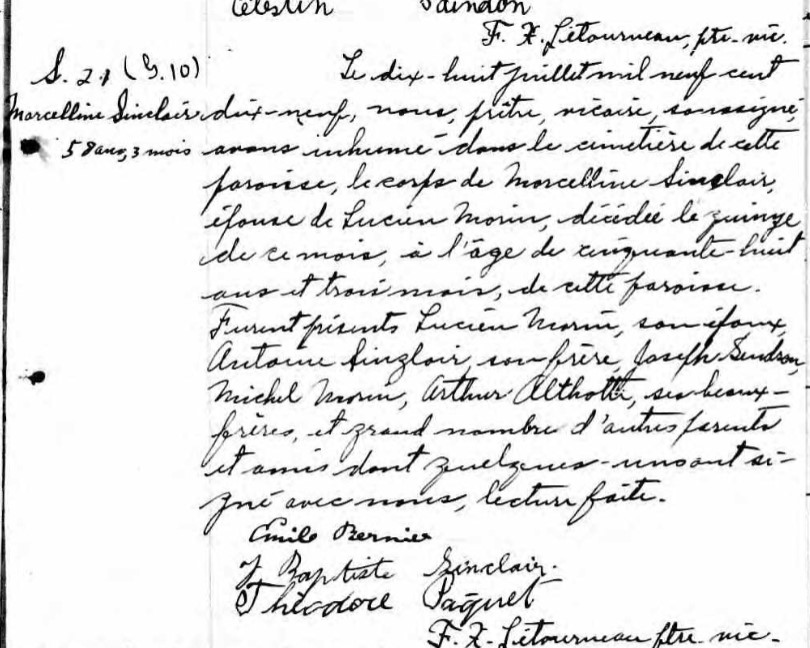 Célestin Dandon
F. X. Létourneau, ptre. vic.
S. 21 (G. 10)
Marcelline Sinclair
58 ans, 3 mois
Le dix-huit juillet mil neuf cent
dix-neuf, nous, prêtre, vicaire, soussigné,
avons inhumé dans le cimetière de cette
paroisse, le corps de Marcelline Sinclair,
épouse de Lucien Morin, décédée le quinze
de ce mois, à l'âge de cinquante-huit
ans et trois mois, de cette paroisse.
Furent présents Lucien Morin, son époux,
Antoine Sinclair, son frère, Joseph
Michel Morin, Arthur ses beaux-
frères, et grand nombre d'autres parents
et amis dont quelques-uns ont si-
gné avec nous, lecture faite.
Emile Bernier
J Baptiste Sinclair.
Théodore Paquet
F. X. Létourneau ptre. vic.